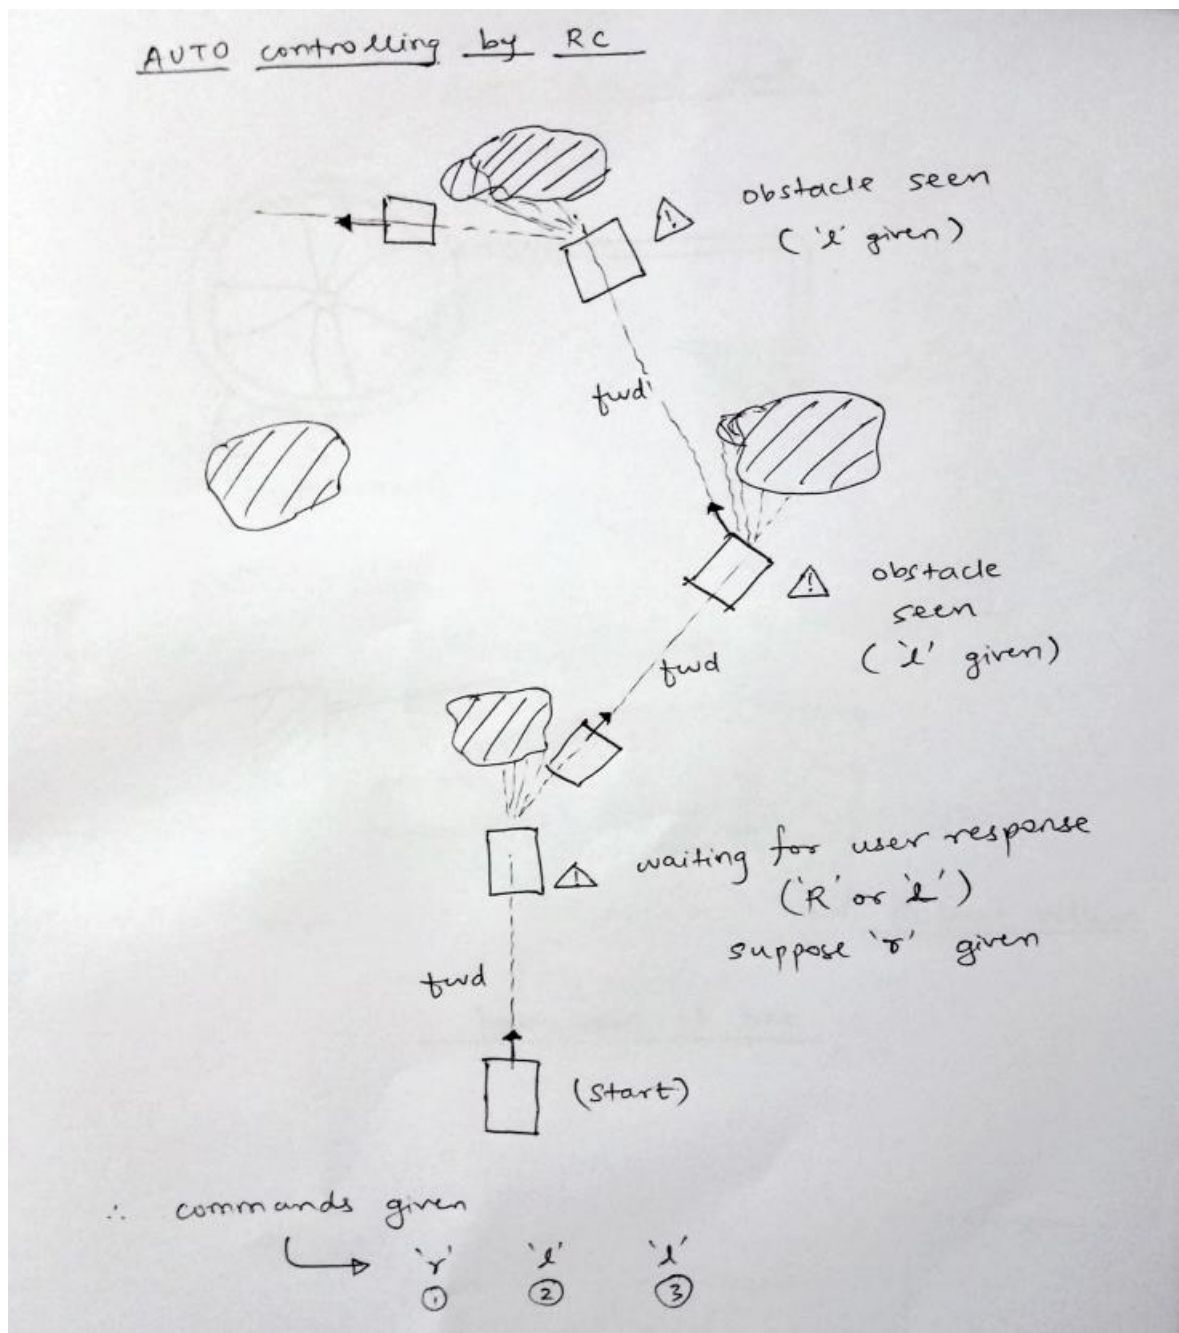 AUTO controlling by RC
obstacle seen
( 'l' given )
fwd
obstacle
seen
( 'l' given )
fwd
waiting for user response
('R' or 'l')
suppose 'r' given
fwd
(start)
∴ commands given
'r' 'l' 'l'
① ② ③